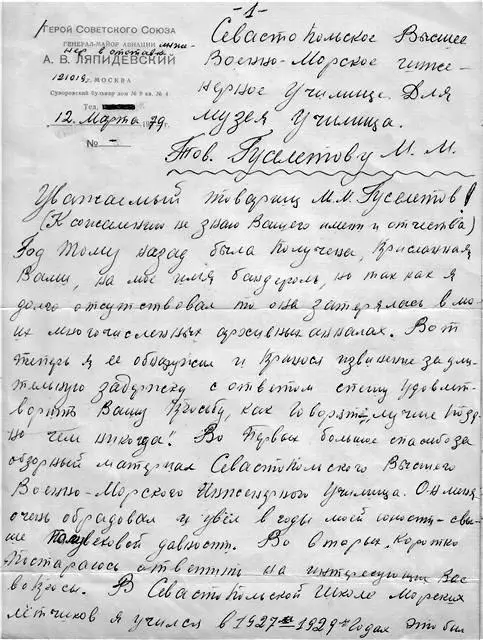 -1-
ГЕРОЙ СОВЕТСКОГО СОЮЗА
ГЕНЕРАЛ-МАЙОР АВИАЦИИ инже-
нер в отставке
А. В. ЛЯПИДЕВСКИЙ
121019, МОСКВА
Суворовский бульвар дом № 9 кв. № 4
Тел.
12. Марта 1979 г.
№ -
Севастопольское Высшее
Военно-Морское инже-
нерное училище. Для
музея училища.
Тов. Гуселетову М. М.
Уважаемый товарищ М. М. Гуселетов!
(К сожалению не знаю Вашего имени и отчества)
Год тому назад была получена, присланная
Вами, на мое имя бандероль, но так как я
долго отсутствовал то она затерялась в мо-
их многочисленных архивных анналах. Вот
теперь я ее обнаружил и принося извинение за дли-
тельную задержку с ответом спешу удовлет-
ворить Вашу просьбу, как говорят, лучше позд-
но чем никогда! Во первых большое спасибо за
обзорный материал Севастопольского Высшего
Военно-Морского Инженерного Училища. Он меня
очень обрадовал и увёл в годы моей юности - свы-
ше полувековой давности. Во вторых, коротко
постараюсь ответить на интересующие Вас
вопросы. В Севастопольской Школе Морских
лётчиков я учился в 1927 - 1929 годах это был